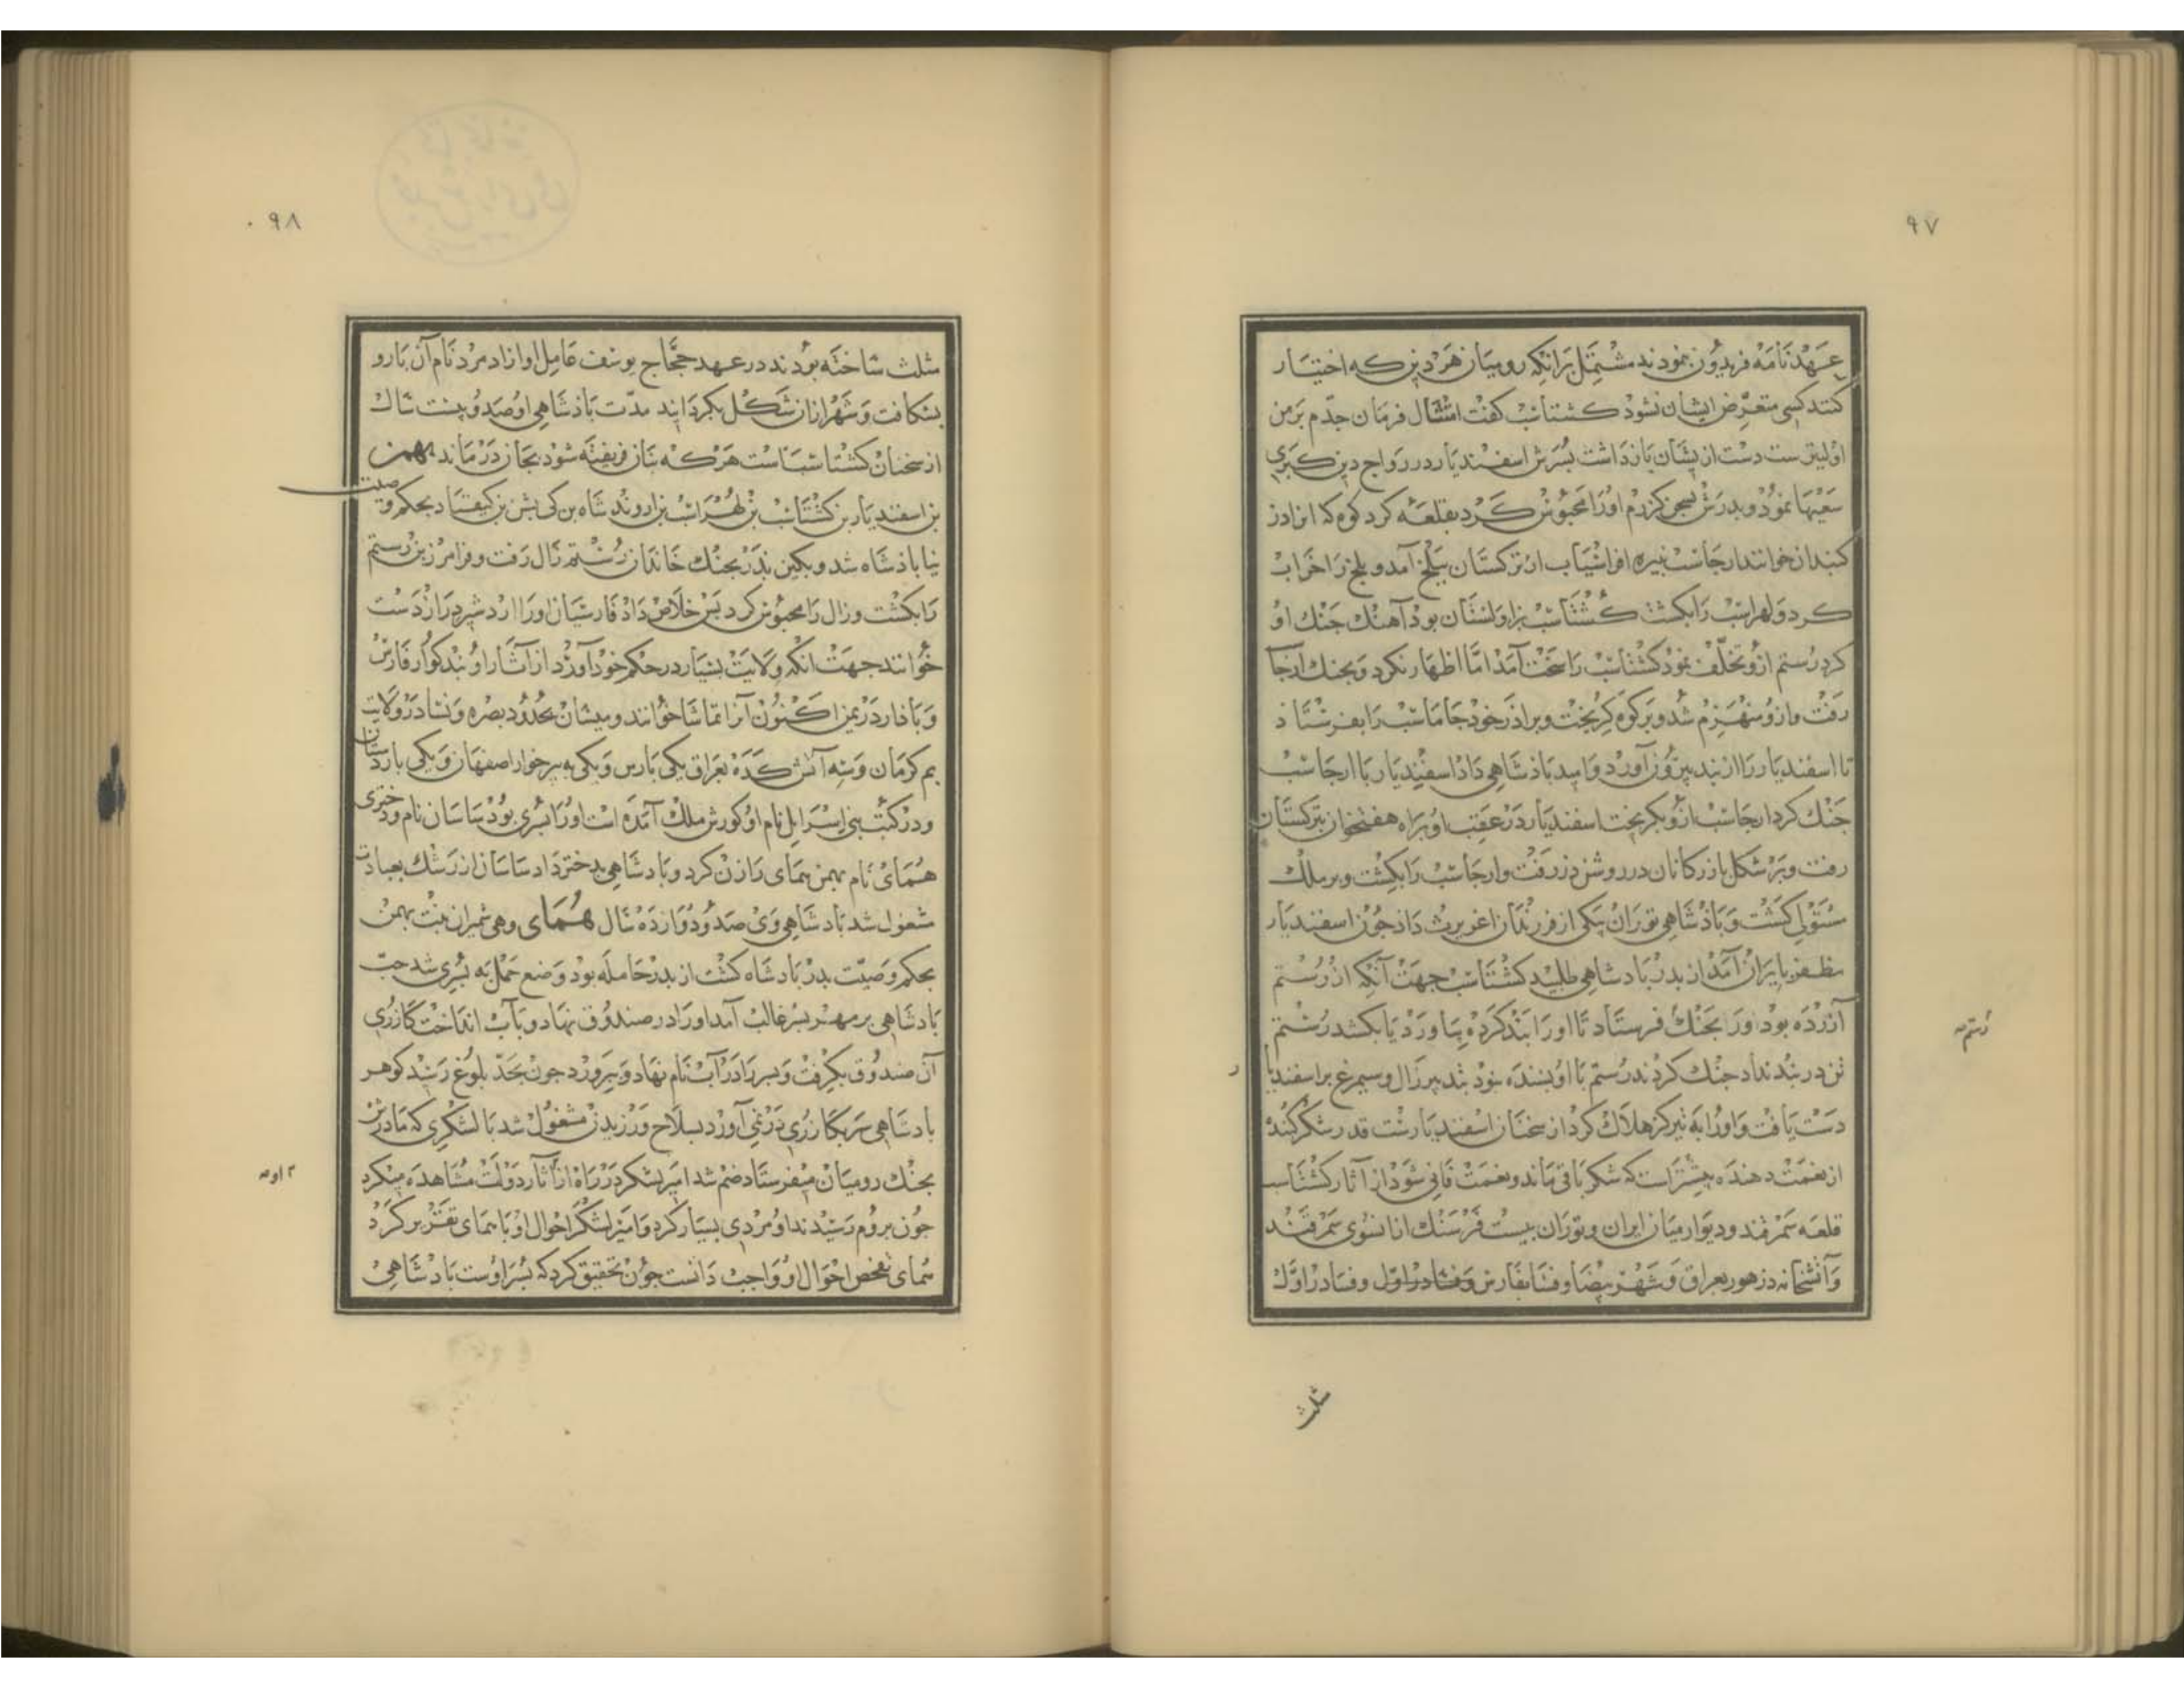 ۹۷
عهدنامه فریدون بنمودند مشتمل برانکه رومیان هر دین که اختیار
کنند کسی متعرض ایشان نشود کشتاسب کفت امتثال فرمان جدم بر من
اولیترست دست از یشان بازداشت بسرش اسفندیار در رواج دین کبری
سعیها نمود و بدرش بسخن کرزم اورا محبوس کرد بقلعه کرد کوه که انرا دز
کنبدان خوانند ارجاسب نبیره افراسیاب از ترکستان ببلخ آمد و بلخ را خراب
کرد و لهراسب را بکشت کشتاسب بزاولستان بود آهنک جنک او
کرد رستم ازو تخلف نمود کشتاسب را سخت آمد اما اظهار نکرد و بجنک ارجاسب
رفت و ازو منهزم شد و بر کوه کریخت و براذر خود جاماسب را بفرستاد
تا اسفندیار را از بند بیرون آورد و امید باذشاهی داد اسفندیار با ارجاسب
جنک کرد ارجاسب ازو بکریخت اسفندیار در عقب او براه هفتخوان بترکستان
رفت و بر شکل بازرکانان در روئین دز رفت و ارجاسب را بکشت و بر ملک
مستولی کشت و باذشاهی توران بیکی از فرزندان اغریرث داد جون اسفندیار
مظفر بایران آمد از بدر بادشاهی طلبید کشتاسب جهت آنکه از رستم
آزرده بود اورا بجنک فرستاد تا اورا بند کرده بیاورد یا بکشد رستم
تن در بند نداد جنک کردند رستم با او بسنده نبود بتدبیر زال و سیمرغ بر اسفندیار
دست یافت و اورا به تیر کز هلاک کرد از سخنان اسفندیارست قدر شکر کننده
از نعمت دهنده بیشتر است که شکر باقی ماند و نعمت فانی شود از آثار کشتاسب
قلعه سمرقند و دیوار میان ایران و توران بیست فرسنک از انسوی سمرقند
و آتشخانه در هور بعراق و شهر بیضا و فسا بفارس و فسا در اول و فسا در اول
رستم
مثلث
۹۸
مثلث ساخته بودند در عهد حجاج یوسف عامل او ازاد مرد نام آن بارو
بشکافت و شهر از ان شکل بکردانید مدت باذشاهی او صد و بیست سال
از سخنان کشتاسب است هر که بنان فریفته شود بجان درماند بهمن
بن اسفندیار بن کشتاسب بن لهراسب بن اروند شاه بن کی بشن بن کیقباد بحکم وصیت
نیا باذشاه شد و بکین بدر بجنک خاندان رستم زال رفت و فرامرز بن رستم
را بکشت و زال را محبوس کرد بس خلاص داد فارسیان اورا اردشیر دراز دست
خوانند جهت انکه ولایت بسیار در حکم خود آورد از آثار او بند کوار فارس
و باذارد زمین اکنون آنرا تماشا خوانند و میسان بحدود بصره و نسا در ولایت
بم کرمان و سه آتش کده بعراق یکی بارس و یکی به برخوار اصفهان و یکی باردستان
و در کتب بنی اسرایل نام او کورش ملک آمده است اورا بسری بود ساسان نام و دختری
همای نام بهمن همای را زن کرد و بادشاهی بدختر داد ساسان از رشک بعبادت
مشغول شد بادشاهی وی صد و دوازده سال همای وهی شمیران بنت بهمن
بحکم وصیت بدر بادشاه کشت از بدر حامله بود وضع حمل به بسری شد حب
بادشاهی بر مهر بسر غالب آمد اورا در صندوق نهاد و بآب انداخت کازری
آن صندوق بکرفت و بسر را دراب نام نهاد و ببرورد جون بحد بلوغ رسید کوهر
بادشاهی سر بکازری در نمی آورد بسلاح ورزیدن مشغول شد با لشکری که مادرش
بجنک رومیان میفرستاد ضم شد امیر لشکر در راه از آثار دولت مشاهده میکرد
جون بروم رسیدند او مردی بسیار کرد و امیر لشکر احوال او با همای تقریر کرد
همای تفحص احوال او واجب دانست جون تحقیق کرد که بسر اوست بادشاهی